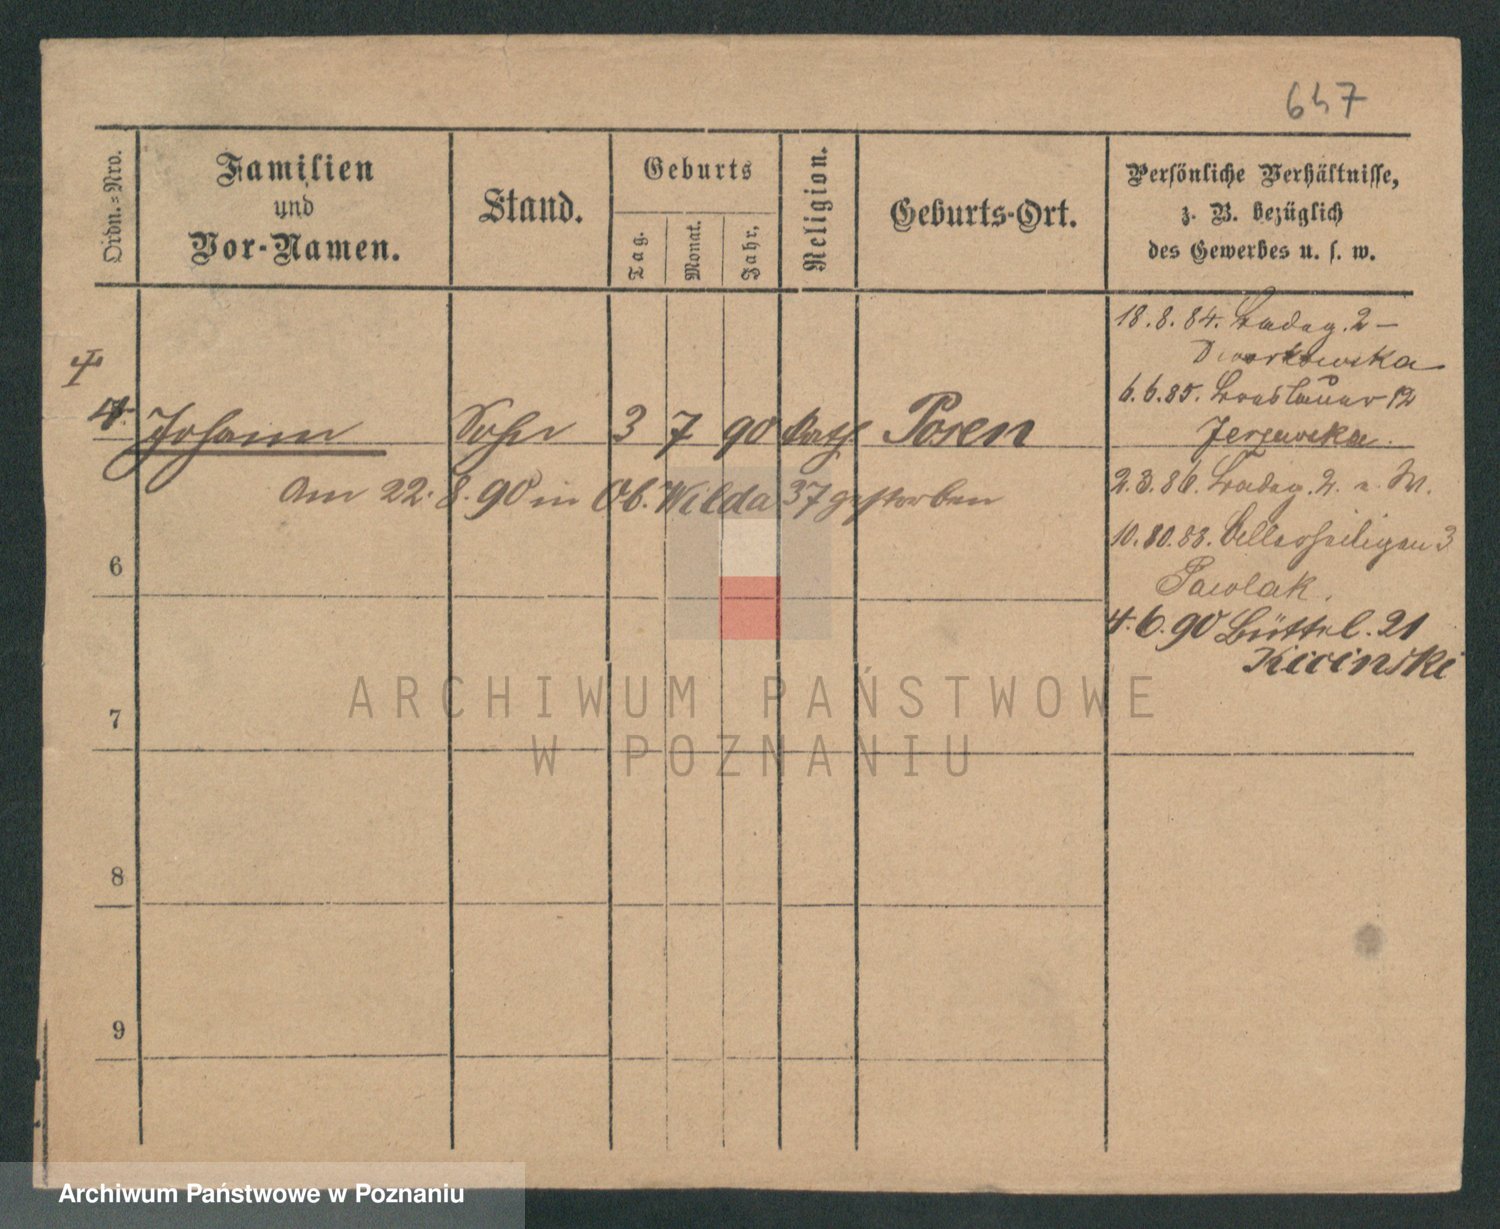 647
Ordn.=Nro.
Familien
und
Vor-Namen.
Stand.
Geburts
Tag.
Monat.
Jahr.
Religion.
Geburts-Ort.
Persönliche Verhältnisse,
z. B. bezüglich
des Gewerbes u. s. w.
4. Johann Sohn 3 7 90 kath Posen
Am 22. 8. 90 in Ob. Wilda 37 gestorben
6
7
8
9
18. 8. 84. 2 –
Dworkowska
6. 6. 85. Breslauer 12
Jerzewska.
2. 3. 86. 2. a. W.
10. 10. 88. Allerheiligen 3
Pawlak.
4. 6. 90 Büttel. 21
Kicinski
ARCHIWUM PAŃSTWOWE
W POZNANIU
Archiwum Państwowe w Poznaniu